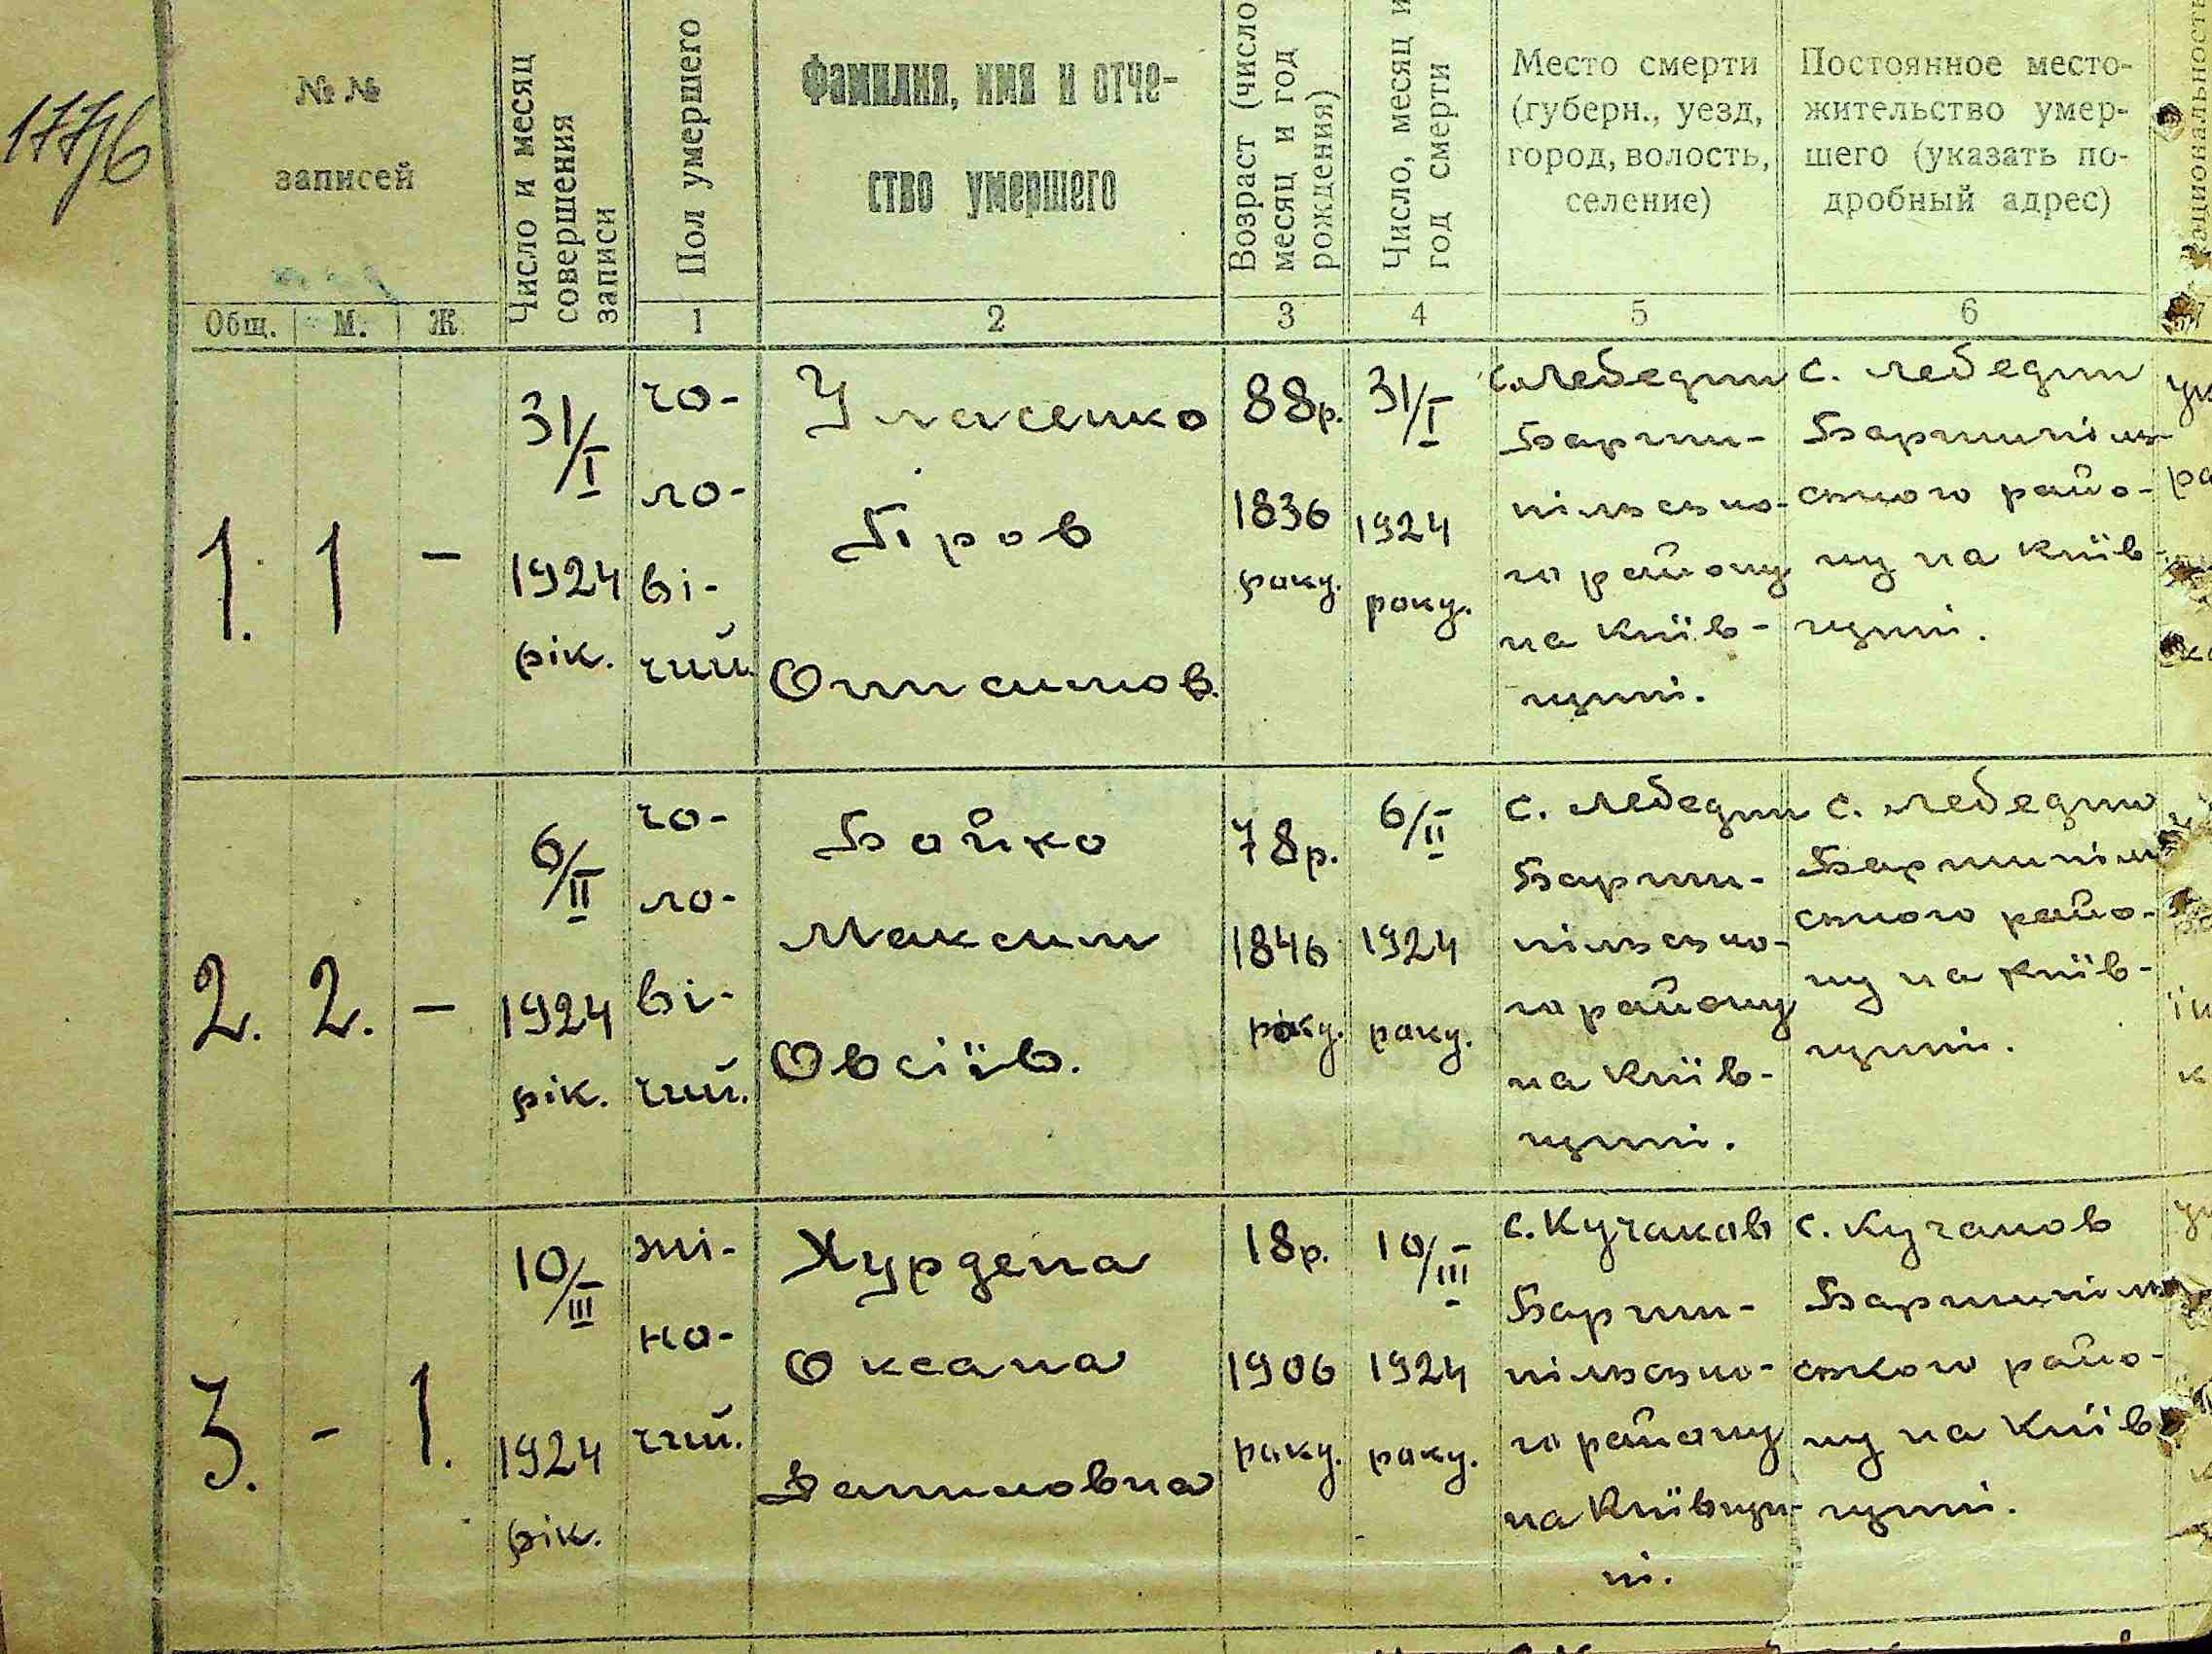 1776
№ №
записей
Общ. М. Ж
Число и месяц
совершения
записи
Пол умершего
1
Фамилия, имя и отче-
ство умершего
2
Возраст (число
месяц и год
рождения)
3
Число, месяц и
год смерти
4
Место смерти
(губерн., уезд,
город, волость,
селение)
5
Постоянное место-
жительство умер-
шего (указать по-
дробный адрес)
6
1. 1 -
31/I
1924
рік.
чо-
ло-
ві-
чий.
Уласенко
Пров
Онисимов.
88р.
1836
року.
31/I
1924
року.
с. Лебедин
Бариш-
пільсько-
го району
на Київ-
щині.
с. Лебедин
Баришпіль-
ського райо-
ну на Київ-
щині.
2. 2. -
6/II
1924
рік.
чо-
ло-
ві-
чий.
Бойко
Максим
Овсіїв.
78р.
1846
року.
6/II
1924
року.
с. Лебедин
Бариш-
пільсько-
го району
на Київ-
щині.
с. Лебедин
Баришпіль
ського райо-
ну на Київ-
щині.
3. - 1.
10/III
1924
рік.
жі-
но-
чий.
Хурдепа
Оксана
Даниловна
18р.
1906
року.
10/III
1924
року.
с. Кучаков
Бариш-
пільсько-
го району
на Київщи-
ні.
с. Кучаков
Баришпіль
ського райо-
ну на Київ
щині.